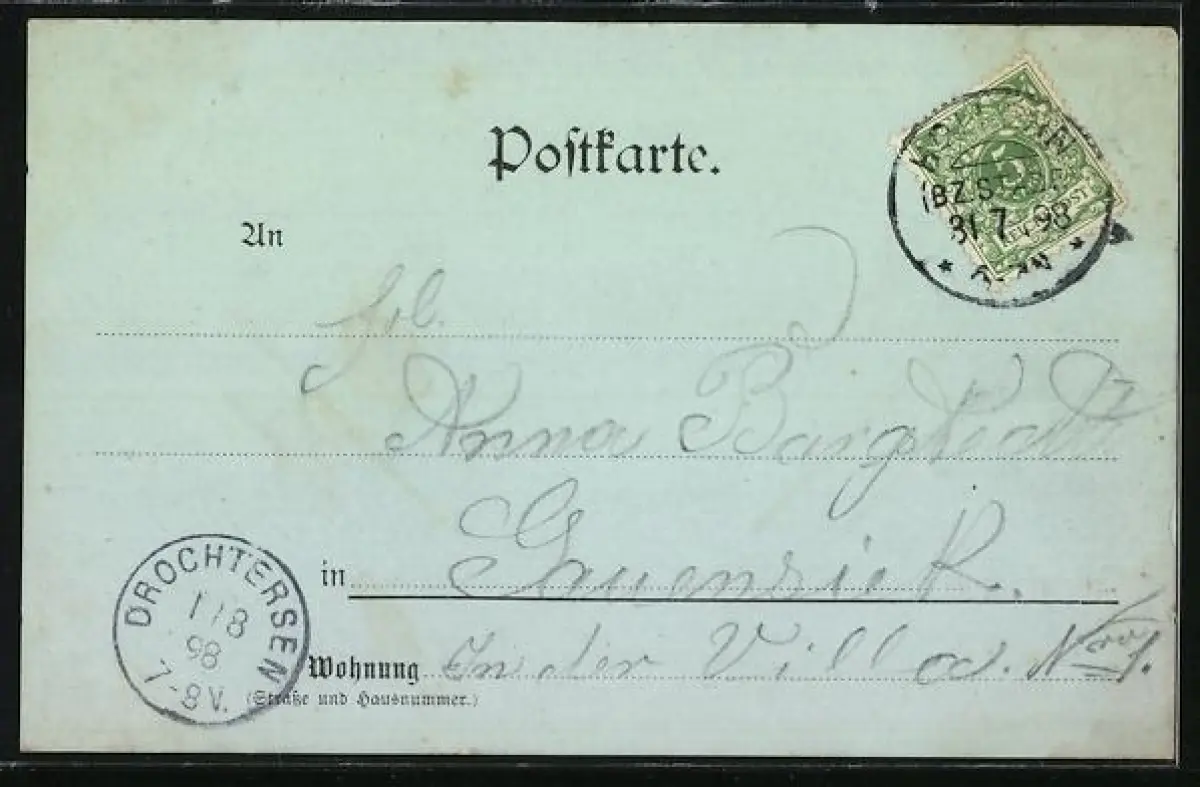 Postkarte.
(BZ. STADE)
31 7 98
5
REICHSPOST
An
Frl.
Anna
in Gauensiek.
DROCHTERSEN
1/8
98
7-8V.
Wohnung In der Villa. Nro 1.
(Straße und Hausnummer.)